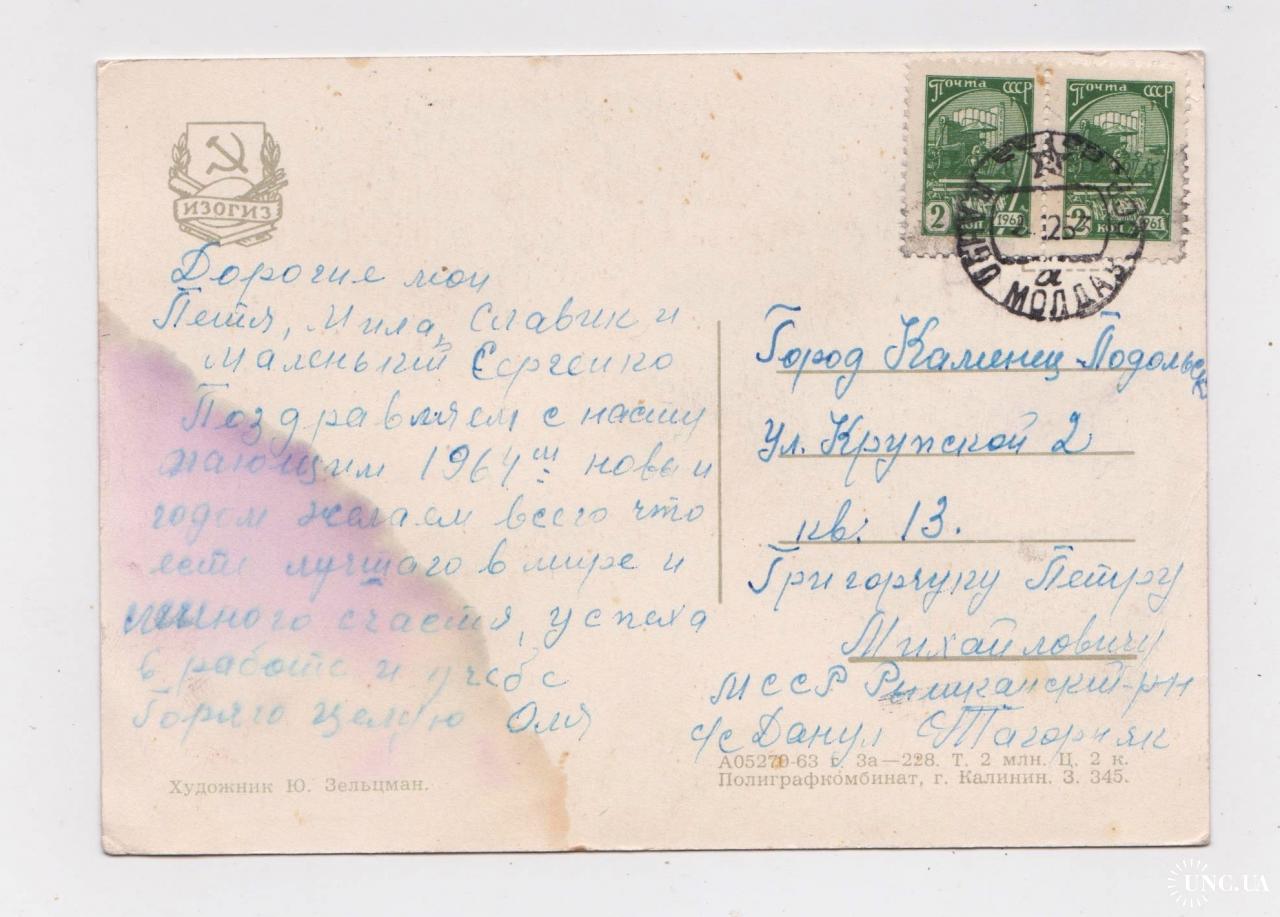 Почта СССР
Почта СССР
2 коп 1961
2 коп 1961
МОЛДАВ
ИЗОГИЗ
Дорогие мои
Петя, Мила, Славик и
маленький
Поздравляем с насту
пающим 1964ым новым
годом желаем всего что
есть лучшего в мире и
много счастя, успеха
в работе и учебе
Горячо целую Оля
Город Каменец Подольск
ул. Крупской 2
кв. 13.
Григорчуку Петру
Михайловичу
МССР Рышканский р-н
с/с Данул
А05270-63 г. За—228. Т. 2 млн. Ц. 2 к.
Полиграфкомбинат, г. Калинин. З. 345.
Художник Ю. Зельцман.
UNC.UA